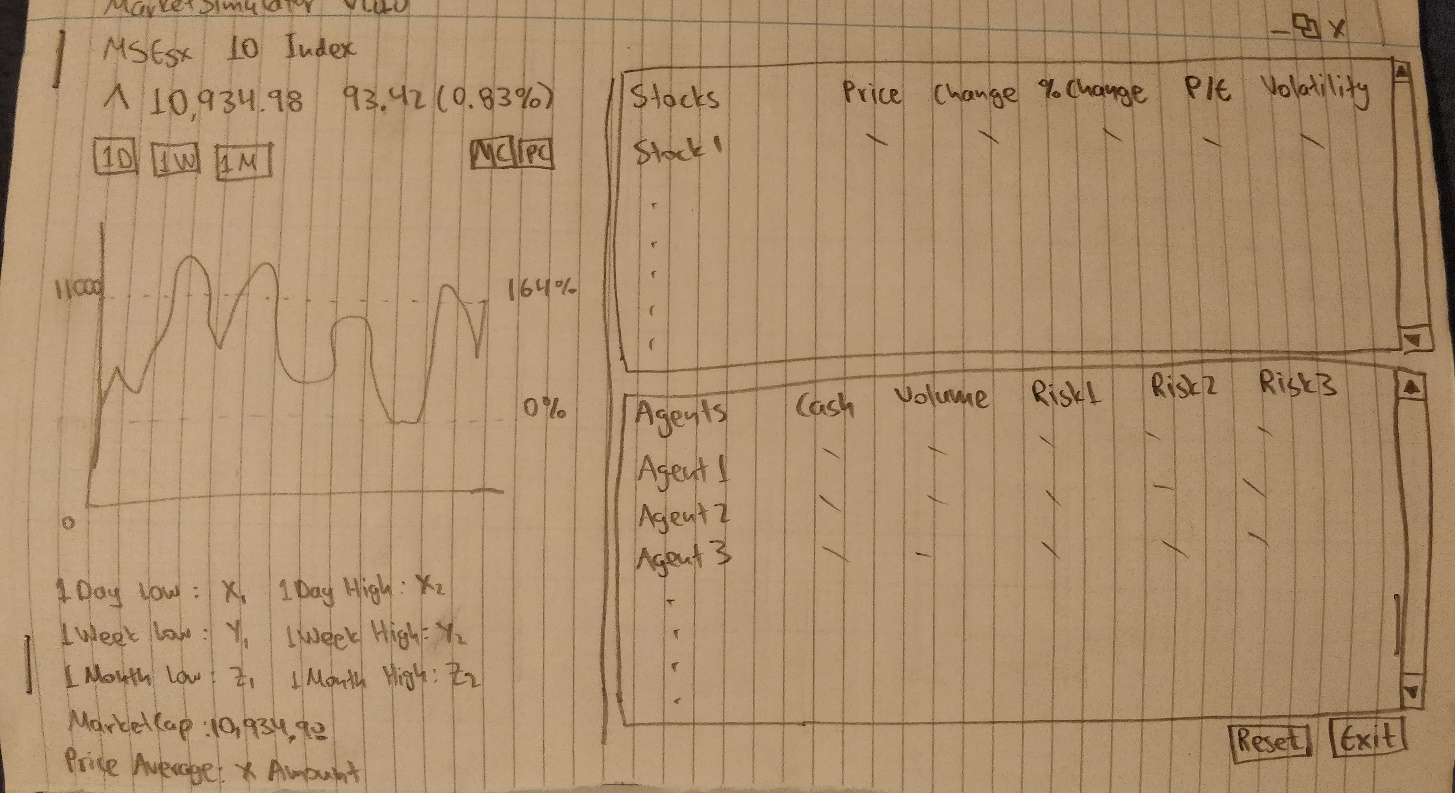 MarketSimulator
MSEsx 10 Index
^ 10,934.98 93.42 (0.83%)
1D 1W 1M MC PC
11000 164%
0%
0
1 Day Low: X₁ 1 Day High: X₂
1 Week Low: Y₁ 1 Week High: Y₂
1 Month Low: Z₁ 1 Month High: Z₂
MarketCap: 10,934,98
Price Average: X Amount
X
Stocks Price Change % Change P/E Volatility
Stock 1
Agents Cash Volume Risk1 Risk2 Risk3
Agent 1
Agent 2
Agent 3
Reset Exit